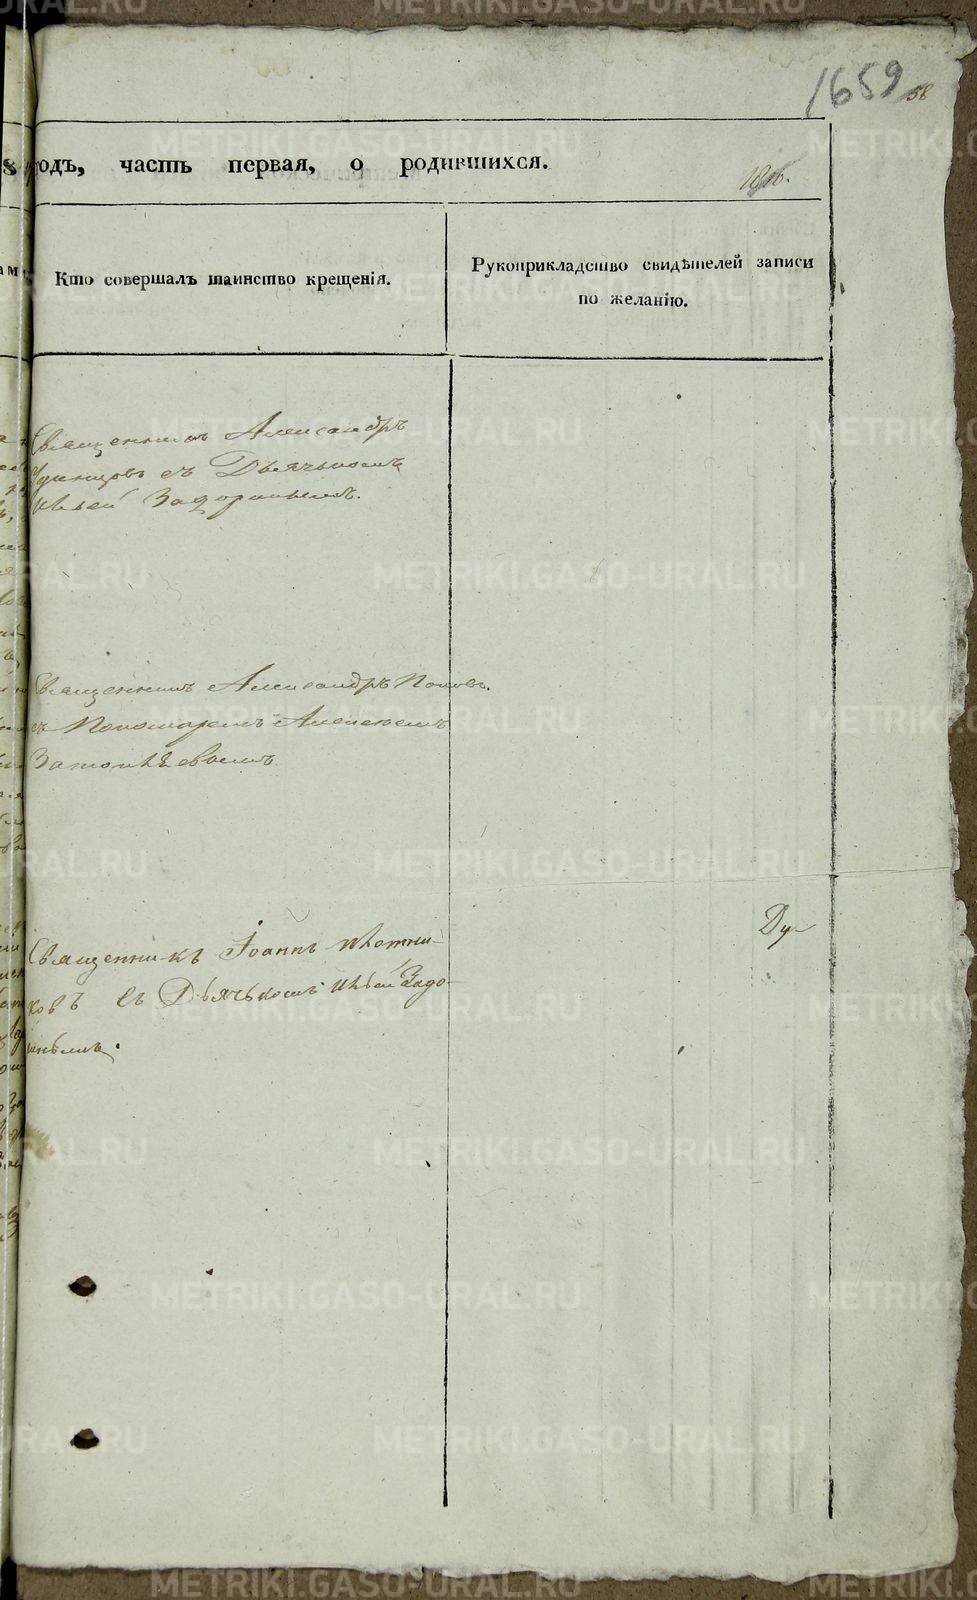 1659
58
8 годъ, часть первая, о родившихся.
Кто совершалъ таинство крещенія.
Рукоприкладство свидѣтелей записи
по желанію.
Священникъ Александръ
съ Дьячькомъ
Ильей Задоринымъ.
Священникъ Александръ Поповъ
съ Пономаремъ Алексѣемъ
Священникъ Іоаннъ Плотни-
ковъ съ Дьячькомъ Ильей Задо-
Ду-
METRIKI.GASO-URAL.RU